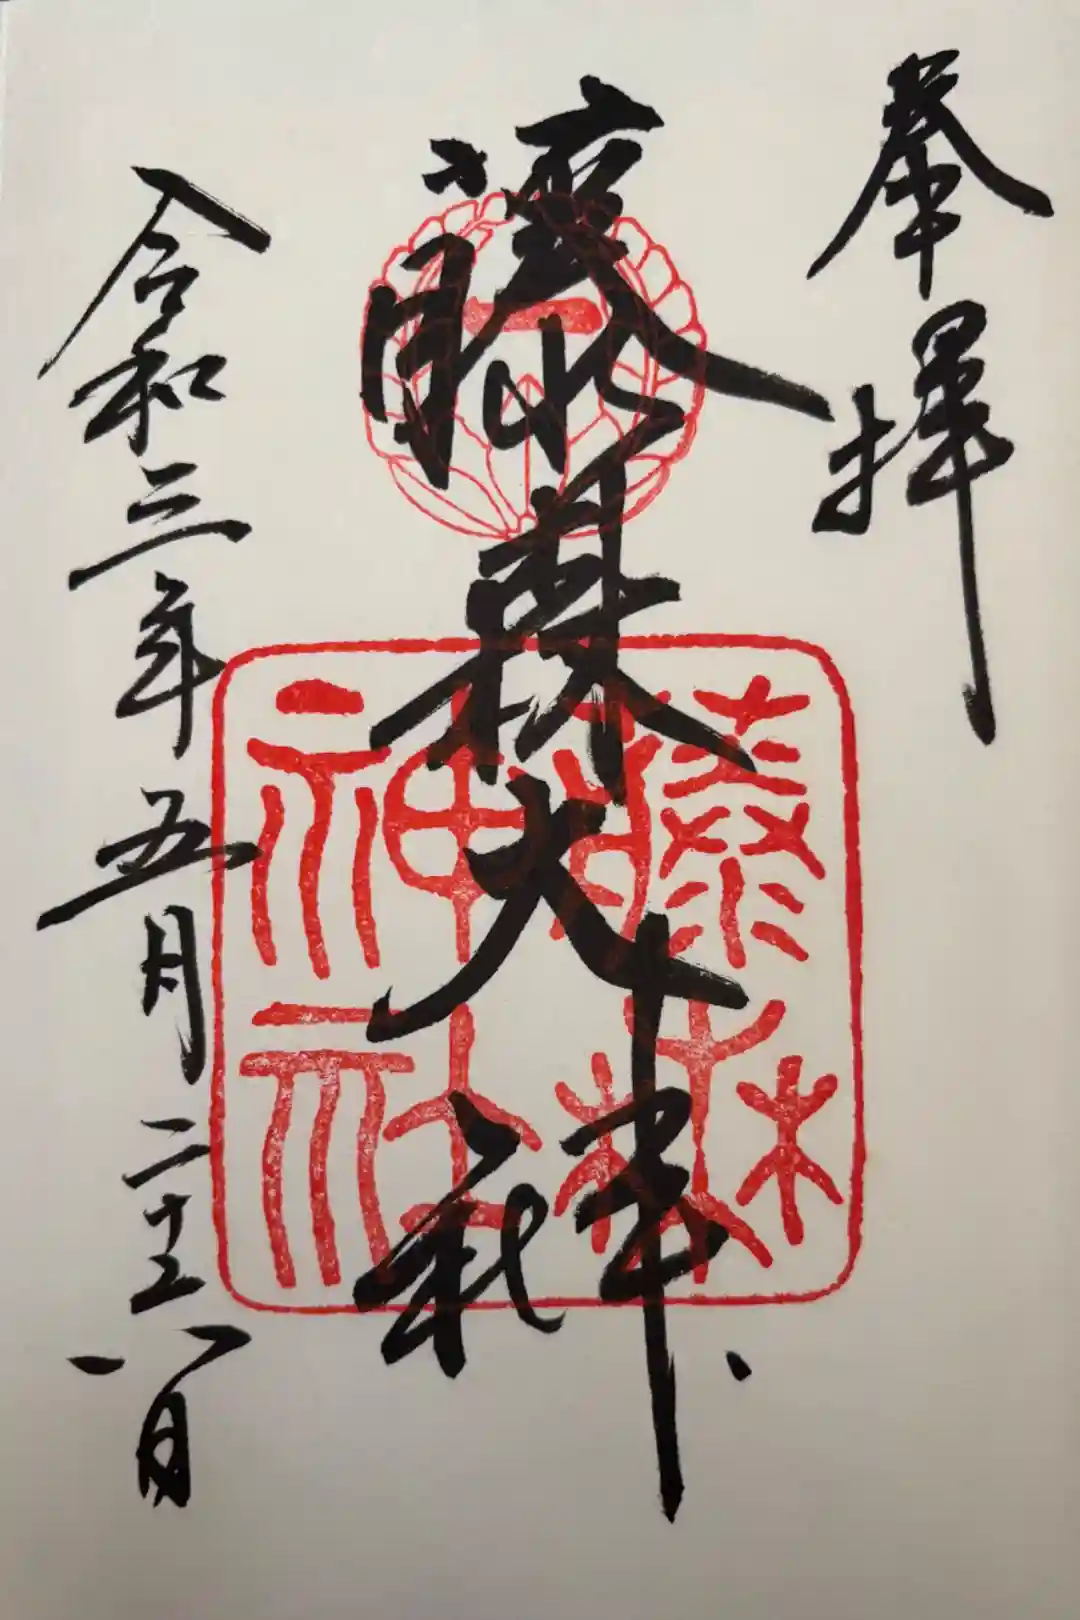 奉拝
藤森大神
令和三年五月二十八日
一
藤森
神社